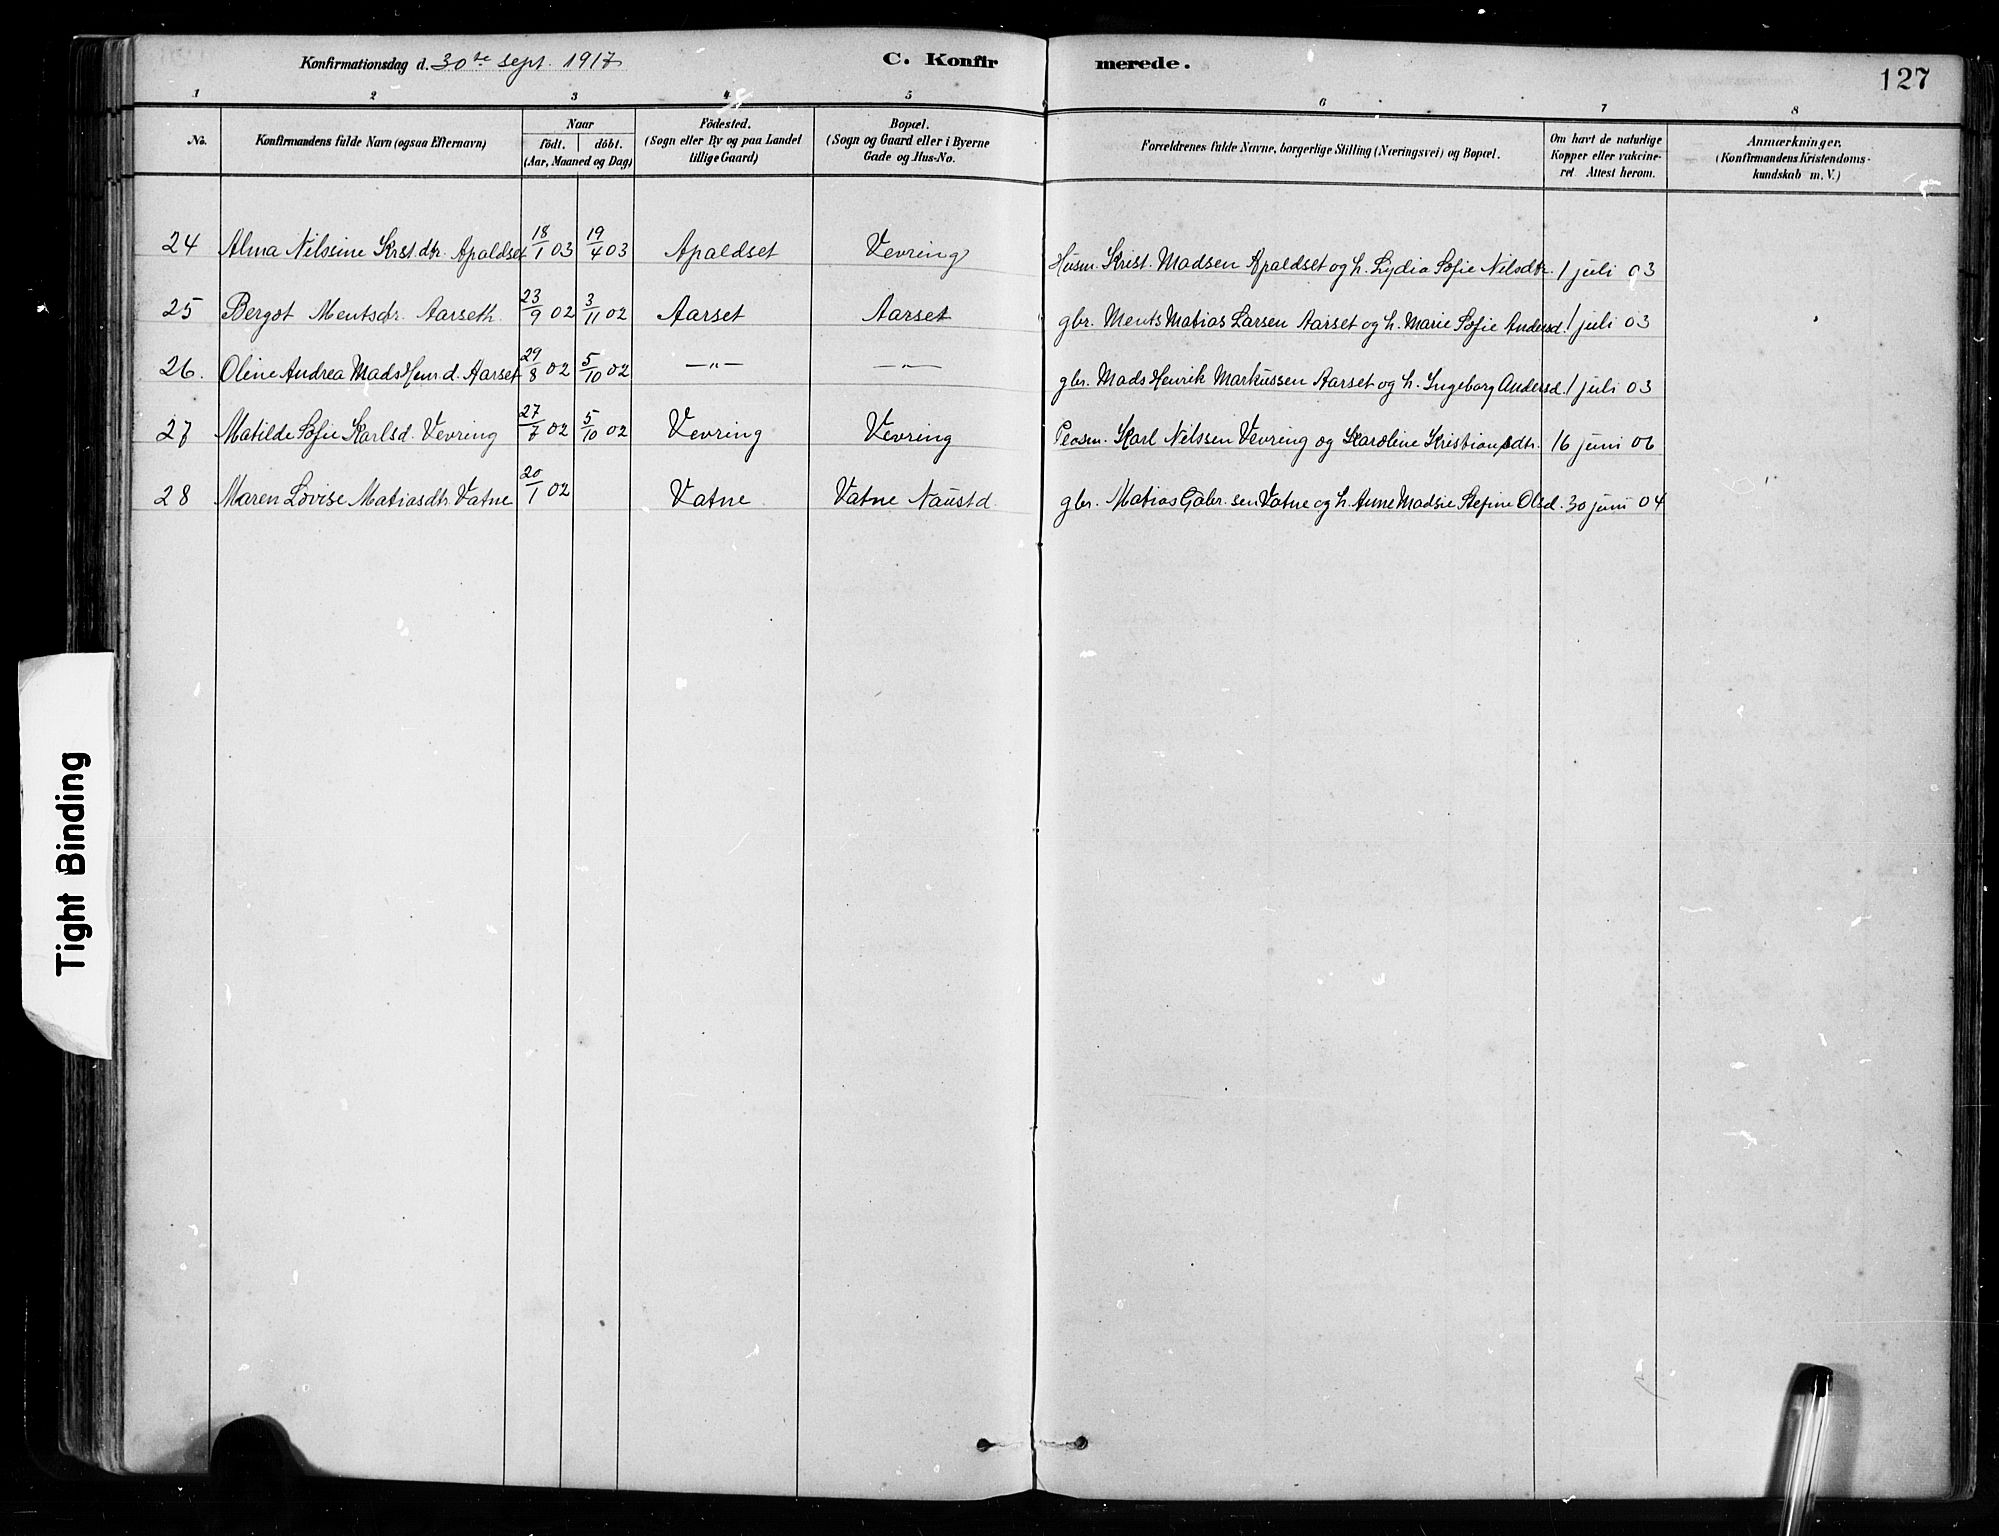 Konfirmationsdag d. 30te sept. 1917
C. Konfirmerede.
127
1 2 3 4 5 6 7 8
No.
Konfirmandens fulde Navn (ogsaa Efternavn)
Naar
födt. döbt.
(Aar, Maaned og Dag)
Födested.
(Sogn eller By og paa Landet
tillige Gaard)
Bopæl.
(Sogn og Gaard eller i Byerne
Gade og Hus-No.
Forældrenes fulde Navne, borgerlige Stilling (Næringsvei) og Bopæl.
Om havt de naturlige
Kopper eller vakcine-
ret Attest herom.
Anmærkninger.
(Konfirmandens Kristendoms-
kundskab m. V.)
24 Alma Nilssine Krst.dtr. Apaldset 18/1 03 19/4 03 Apaldset Vevring Husm. Krist. Madsen Apaldset og h. Lydia Sofie Nilsdtr. 1 juli 03
25 Bergot Mentsdr. Aarseth 23/9 02 3/11 02 Aarset Aarset gbr. Ments Matias Larsen Aarset og h. Marie Sofie Andersd. 1 juli 03
26. Oline Andrea Mads Henr d. Aarset 29/8 02 5/10 02 —"— —"— gbr. Mads Henrik Markussen Aarset og h. Ingeborg Andersd. 1 juli 03
27 Matilde Sofie Karlsd. Vevring 27/7 02 5/10 02 Vevring Vevring Karl Nilssen Vevring og Karoline Kristiansdtr. 16 juni 06
28 Maren Lovise Matiasdtr. Vatne 20/1 02 Vatne Vatne Naustd. gbr. Matias Gabr. sen Vatne og h. Anne Madsie Stefine Olsd. 30 juni 04
Tight Binding